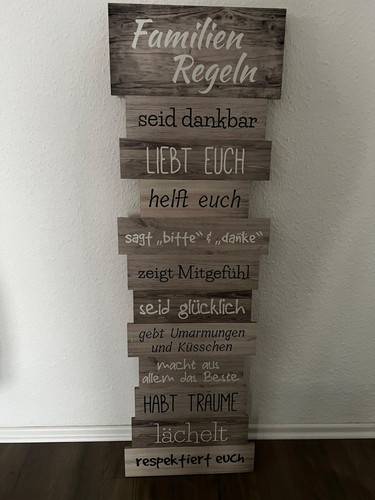 Familien
Regeln
seid dankbar
LIEBT EUCH
helft euch
sagt „bitte“ & „danke“
zeigt Mitgefühl
seid glücklich
gebt Umarmungen
und Küsschen
macht aus
allem das Beste
HABT TRÄUME
lächelt
respektiert euch